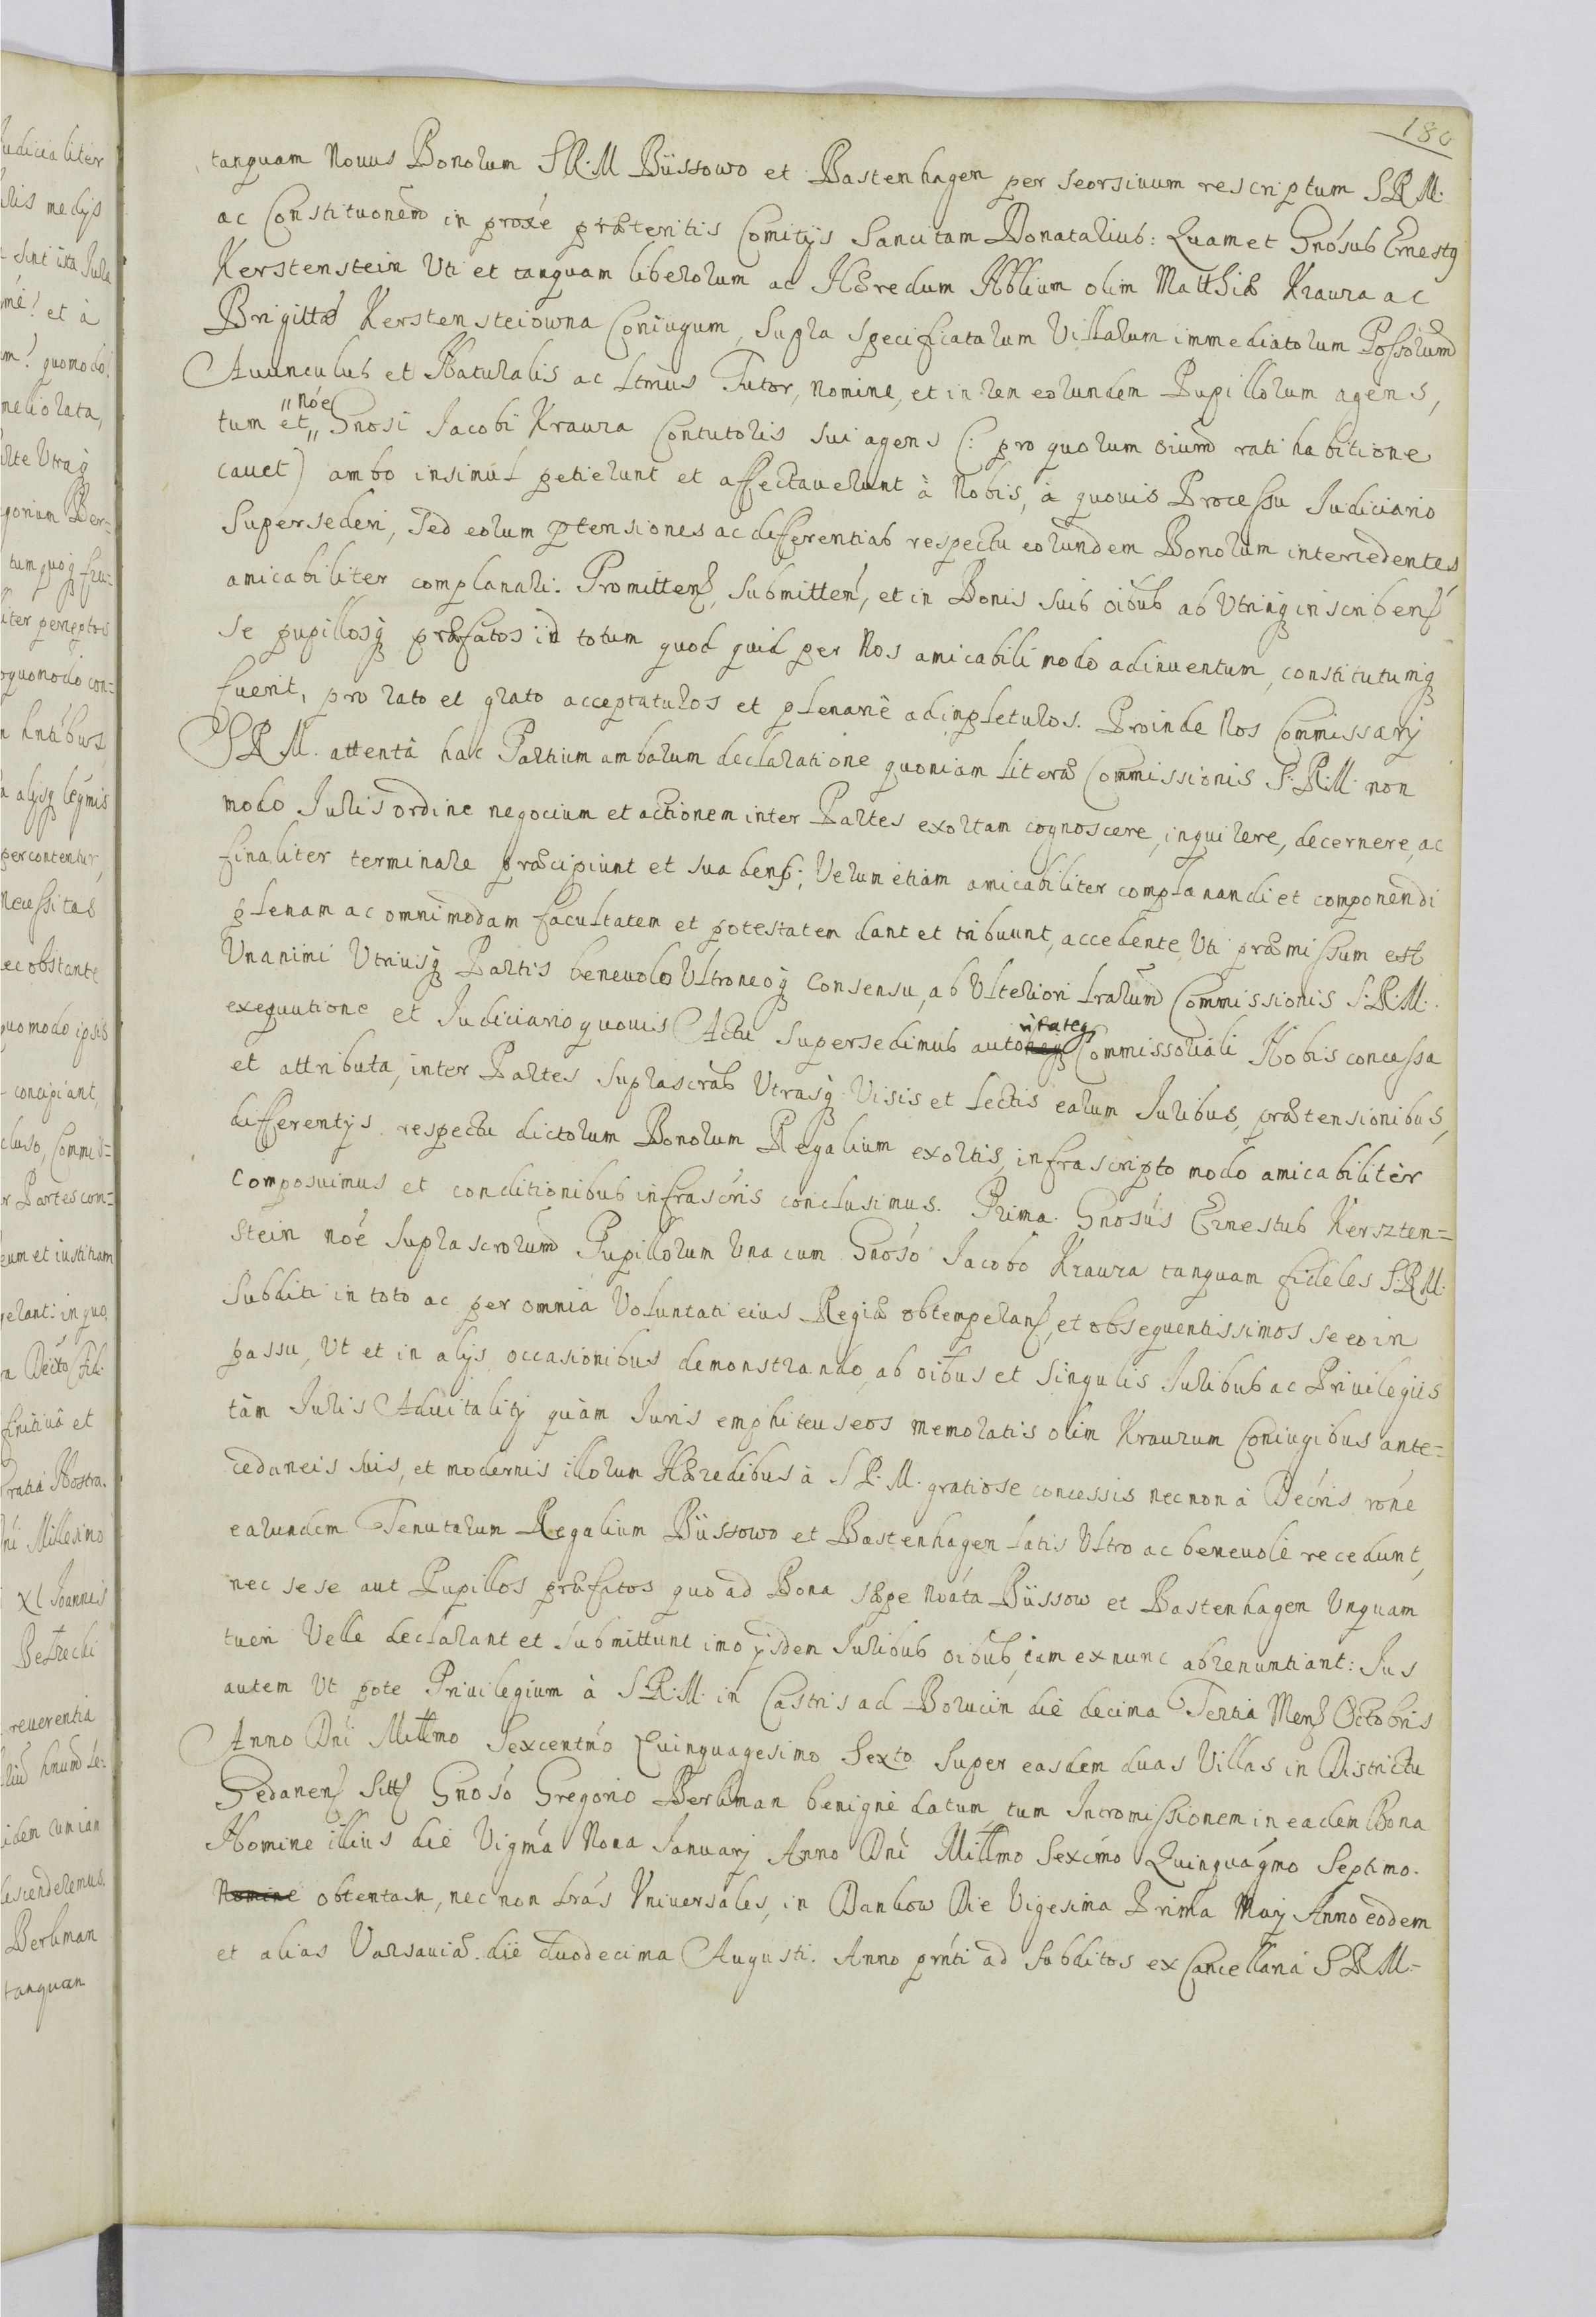 180
tanquam Novus Bonorum S.R.M Büssowo et Bastenhagen per seorsivum rescriptum S.R.M.
ac Constituōnem in proxē præteritis Comitijs Sancitam Donatarius: Quam et Gnōsus Ernestq
Kerstenstein Uti et tanquam liberorum ac Hæredum Nblium olim Matthiæ Kraura ac
Brigittæ Kerstensteiowna Coniugum, Supra specificatarum Villarum immediatorum Possorum
Avunculus et Naturalis ac Ltmus Tutor, nomine, et in rem eorundem Pupillorum agens,
tum et „nōe„ Gnosi Jacobi Kraura Contutoris sui agens (: pro quorum oium rati habitione
cavet) ambo insimul petierunt et affectaverunt à Nobis, à quovis Processu Judiciario
Supersederi, Sed eorum ptensiones ac differentias respectu eorundem Bonorum intercedentes,
amicabiliter complanari. Promitten, Submitten, et in Bonis suis oibus ab Utrinq inscriben
se pupillosq præfatos id totum quod quid per Nos amicabili modo adinventum, constitutumq
fuerit, pro rato et grato acceptaturos et plenariè adimpleturos. Proinde Nos Commissarij
S.R.M. attentâ hac Partium ambarum declaratione quoniam literæ Commissionis S.R.M. non
modo Juris ordine negocium et actionem inter Partes exortam cognoscere, inquirere, decernere, ac
finaliter terminare præcipiunt et suadent; Verum etiam amicabiliter complanandi et componendi
plenam ac omnimodam facultatem et potestatem dant et tribuunt, accedente, Uti præmissum est
Unanimi Utriusq Partis benevolo Ultroneoq Consensu, ab Ulteriori Lrarum Commissionis S.R.M.
exequutione et Judiciario quovis Actu Supersedimus autoritateq Commissoriali Nobis concessa
et attributa, inter Partes suprascrās Utrasq Visis et Lectis earum Juribus, prætensionibus,
differentijs respectu dictorum Bonorum Regalium exortis, infrascripto modo amicabiliter
composuimus et conditionibus infrascris conclusimus. Prima. Gnosus Ernestus Kerszten=
stein nōe suprascrorum Pupillorum Una cum Gnōso Jacobo Kraura tanquam fideles S.R.M.
Subditi in toto ac per omnia Voluntati eius Regiæ obtemperan, et obsequentissimos se eo in
passu, Ut et in alijs occasionibus demonstrando, ab oibus et Singulis Juribus ac Privilegiis
tàm Juris Advitalitj quàm Juris emphiteuseos memoratis olim Kraurum Coniugibus ante=
cedaneis suis, et modernis illorum Hæredibus à S.R.M. gratiose concessis necnon à Decris rōne
earundem Tenutarum Regalium Büssowo et Bastenhagen latis Ultro ac benevole recedunt,
nec sese aut Pupillos præfatos quo ad Bona sæpe noāta Büssow et Bastenhagen Unquam
tueri Velle declarant et submittunt imo ijsdem Juribus oibus, iam ex nunc abrenuntiant: Jus
autem Ut pote Privilegium à S.R.M. in Castris ad Borucin die decima Tertia Mens Octobris
Anno Dni Millmo Sexcentmo Quinquagesimo Sexto super easdem duas Villas in Districtu
Gedanen Sitt Gnōso Gregorio Berkman benigne datum tum Intromissionem in eadem Bona
Nomine illius die Vigma Nona Januarj Anno Dni Millmo Sexcmo Quinquagmo Septimo.
Nomine obtentam, nec non Lras Universales, in Dankow Die Vigesima Prima Maij Anno eodem
et alias Varsaviæ die duodecima Augusti. Anno prnti ad subditos ex Cancellaria S.R.M.